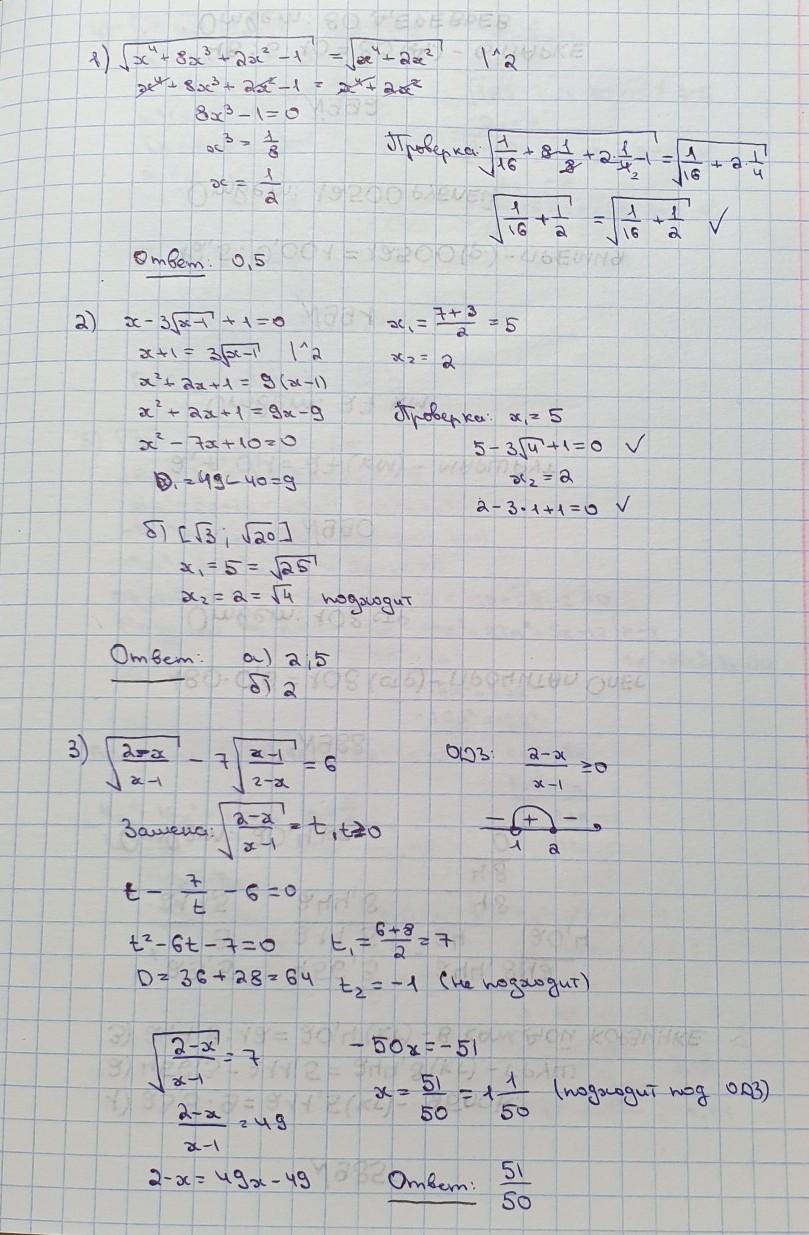 1) √(x⁴ + 8x³ + 2x² - 1) = √(x⁴ + 2x²) |^2
x⁴ + 8x³ + 2x² - 1 = x⁴ + 2x²
8x³ - 1 = 0
x³ = 1/8
x = 1/2
Проверка: √(1/16 + 8·1/8 + 2·1/4 - 1) = √(1/16 + 2·1/4)
√(1/16 + 1/2) = √(1/16 + 1/2) ✓
Ответ: 0,5
2) x - 3√(x-1) + 1 = 0
x + 1 = 3√(x-1) |^2
x² + 2x + 1 = 9(x-1)
x² + 2x + 1 = 9x - 9
x² - 7x + 10 = 0
D₁ = 49 - 40 = 9
x₁ = (7+3)/2 = 5
x₂ = 2
Проверка: x₁ = 5
5 - 3√4 + 1 = 0 ✓
x₂ = 2
2 - 3·1 + 1 = 0 ✓
б) [√3; √20]
x₁ = 5 = √25
x₂ = 2 = √4 подходит
Ответ: а) 2;5
б) 2
3) √((2-x)/(x-1)) - 7√((x-1)/(2-x)) = 6
ОДЗ: (2-x)/(x-1) ≥ 0
Замена: √((2-x)/(x-1)) = t, t≥0
- + -
1 2
t - 7/t - 6 = 0
t² - 6t - 7 = 0
D = 36 + 28 = 64
t₁ = (6+8)/2 = 7
t₂ = -1 (не подходит)
√((2-x)/(x-1)) = 7
(2-x)/(x-1) = 49
2 - x = 49x - 49
-50x = -51
x = 51/50 = 1 1/50 (подходит под ОДЗ)
Ответ: 51/50